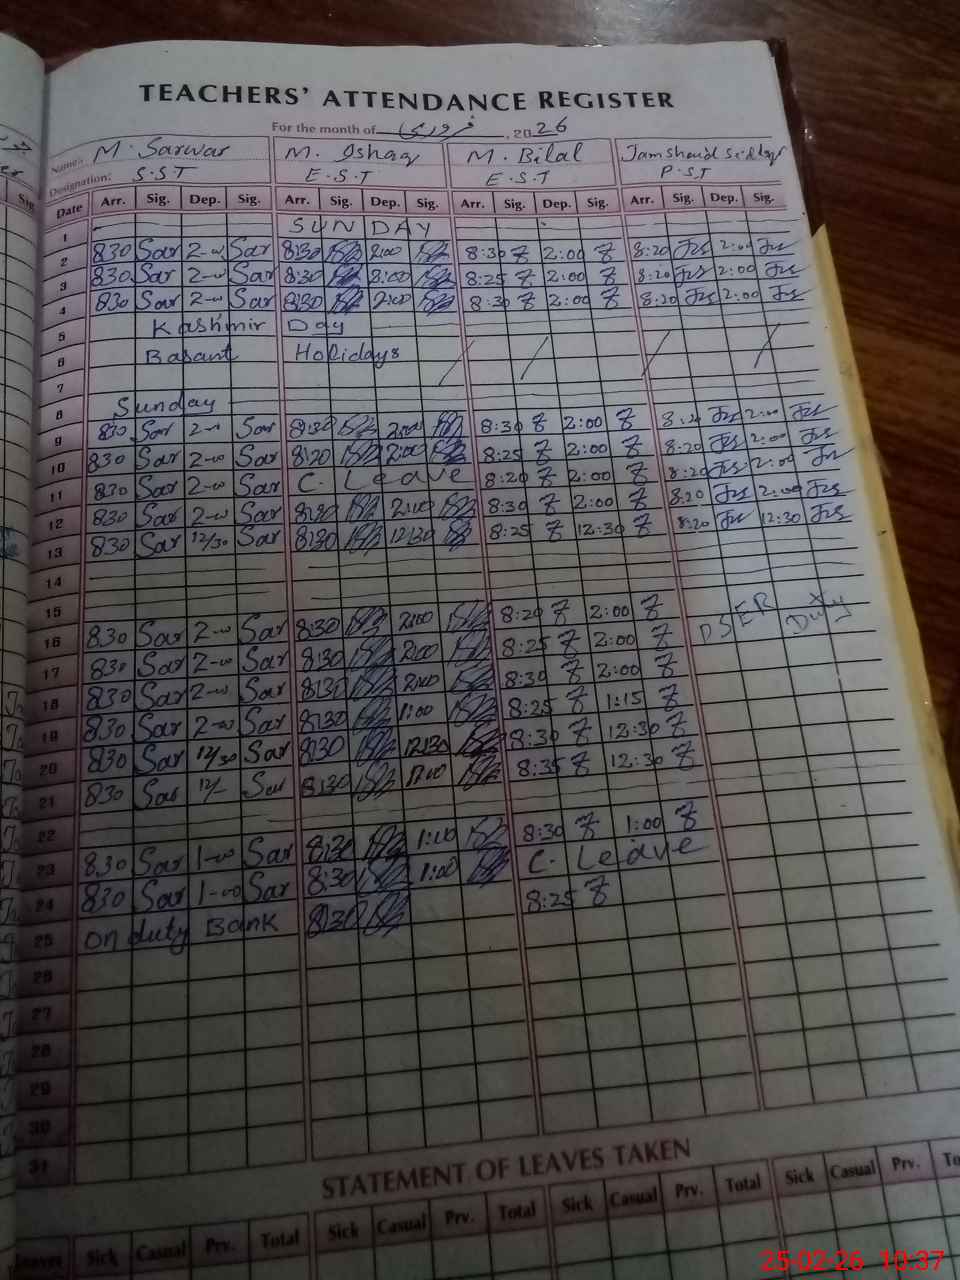 TEACHERS' ATTENDANCE REGISTER
For the month of فروری, 2026
Name: M. Sarwar M. Ishaq M. Bilal Jamshaid
Designation: S.S.T E.S.T E.S.T P.S.T
Date Arr. Sig. Dep. Sig. Arr. Sig. Dep. Sig. Arr. Sig. Dep. Sig. Arr. Sig. Dep. Sig.
1 SUNDAY
2 830 Sar 2-00 Sar 8:30 2:00 8:30 2:00 8:20 2:00
3 830 Sar 2-00 Sar 8:30 2:00 8:25 2:00 8:20 2:00
4 830 Sar 2-00 Sar 8:30 2:00 8:30 2:00 8:20 2:00
5 Kashmir Day
6 Basant Holidays
7
8 Sunday
9 830 Sar 2-00 Sar 8:30 2:00 8:30 2:00 8:20 2:00
10 830 Sar 2-00 Sar 8:20 2:00 8:25 2:00 8:20 2:00
11 830 Sar 2-00 Sar C. Leave 8:20 2:00 8:20 2:00
12 830 Sar 2-00 Sar 8:30 2:00 8:30 2:00 8:20 2:00
13 830 Sar 12/30 Sar 8:30 12:30 8:25 12:30 8:20 12:30
14
15
16 830 Sar 2-00 Sar 8:30 2:00 8:20 2:00 DSER Duty
17 830 Sar 2-00 Sar 8:30 2:00 8:25 2:00
18 830 Sar 2-00 Sar 8:30 2:00 8:30 2:00
19 830 Sar 2-00 Sar 8:30 1:00 8:25 1:15
20 830 Sar 12/30 Sar 8:30 12:30 8:30 12:30
21 830 Sar 12/- Sar 8:30 8:35 12:30
22
23 830 Sar 1-00 Sar 8:30 1:00 8:30 1:00
24 830 Sar 1-00 Sar 8:30 1:00 C. Leave
25 on duty Bank 8:30 8:25
26
27
28
29
30
31
STATEMENT OF LEAVES TAKEN
Leaves Sick Casual Prv. Total Sick Casual Prv. Total Sick Casual Prv. Total Sick Casual Prv.
25-02-26 10:37